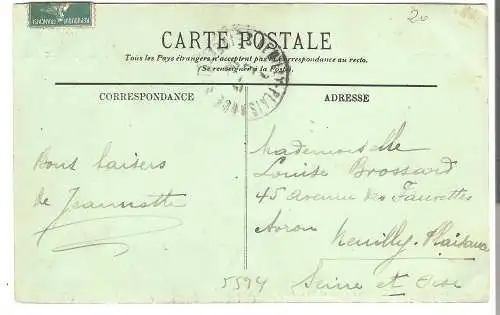 REPUBLIQUE FRANÇAISE
20
CARTE POSTALE
Tous les Pays étrangers n'acceptent pas la Correspondance au recto.
(Se renseigner à la Poste).
CORRESPONDANCE
Bons baisers
de Jeannette
ADRESSE
Mademoiselle
Louise Brossard
45 Avenue des Fauvettes
Avron Neuilly-Plaisance
Seine et Oise
5594